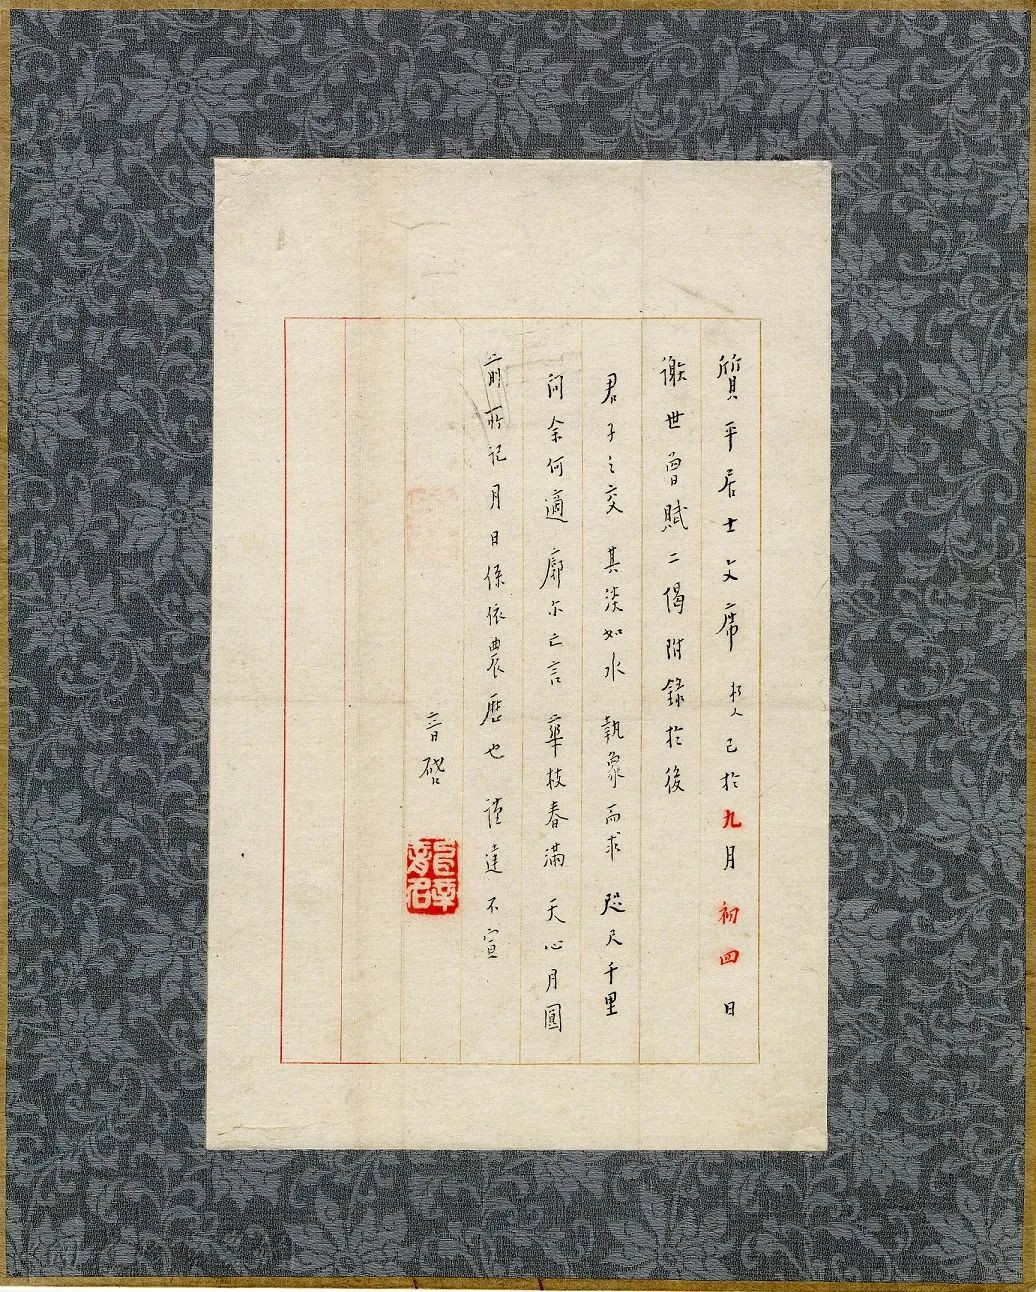 質平居士文席 朽人已於九月初四日
謝世曾賦二偈附錄於後
君子之交 其淡如水 執象而求 咫尺千里
問余何適 廓尒亡言 華枝春滿 天心月圓
前所記月日係依農歷也 謹達不宣
音啓